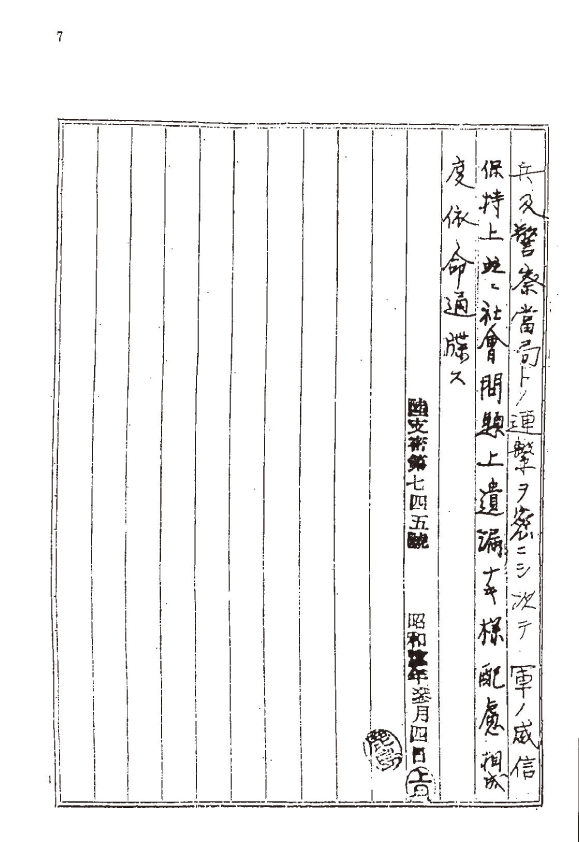 7
兵及警察當局トノ連繋ヲ密ニシ次テ軍ノ威信
保持上並ニ社會問題上遺漏ナキ樣配慮相成
度依命通牒ス
陸支密第七四五號 昭和年参月四日